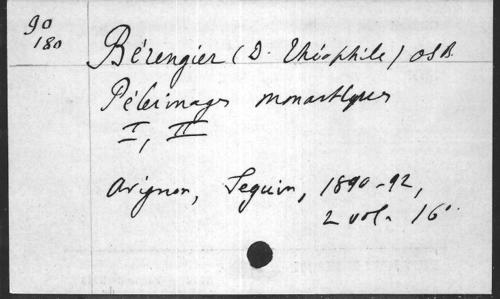 90
180
Bérengier (D. Théophile) OSB
Pélerinages monastiques
I, II
Avignon, Seguin, 1890-92,
2 vol. 16°.